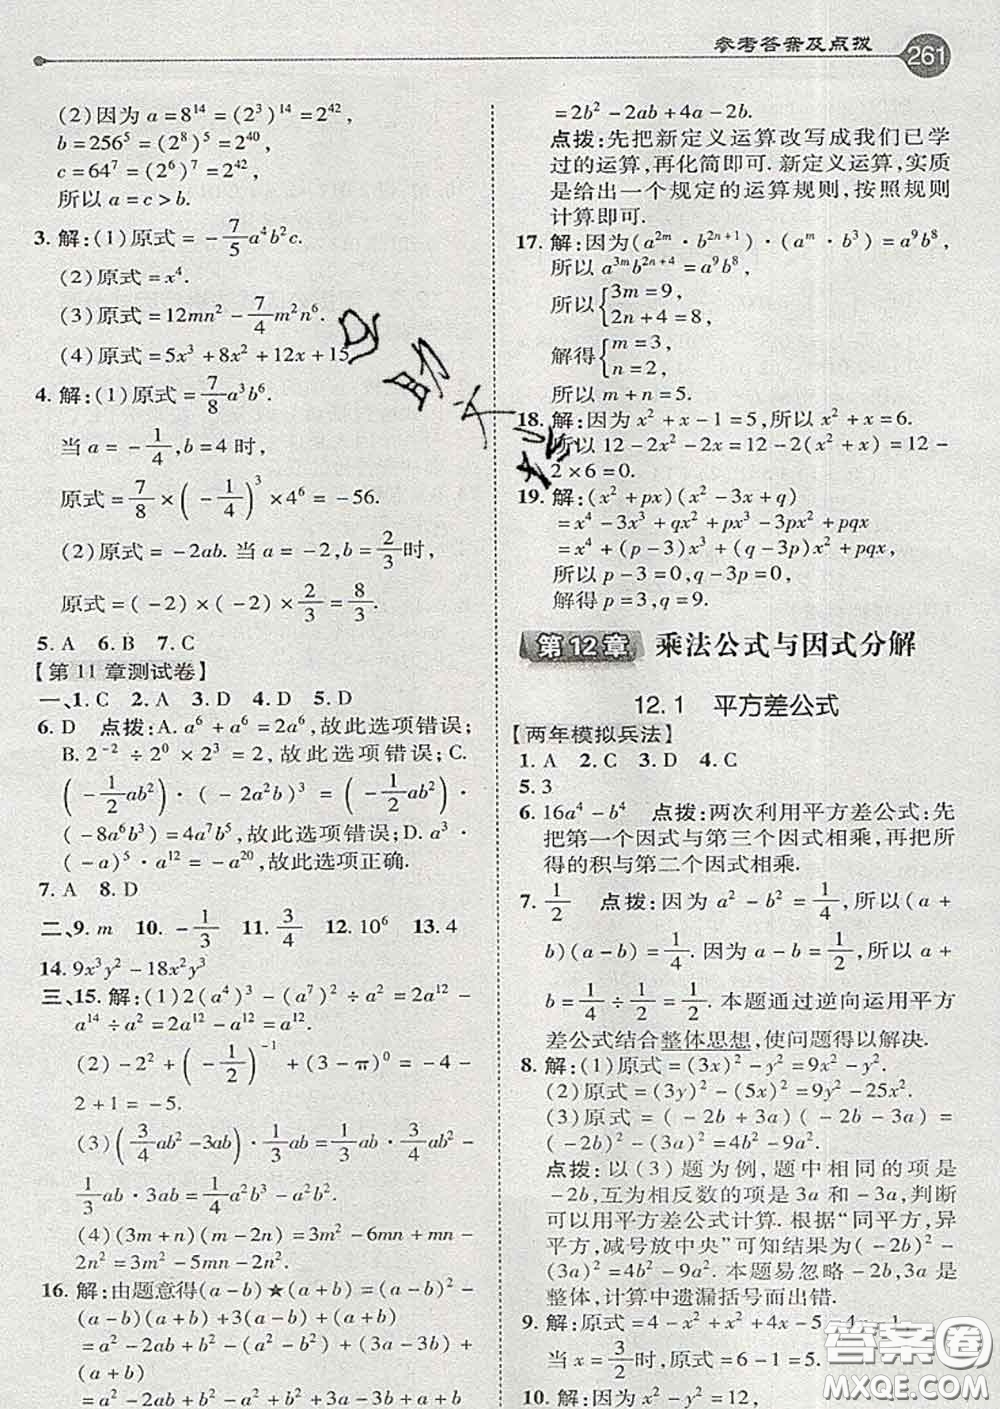 参考答案及点拨
261
(2)因为 a=8^{14}=(2^3)^{14}=2^{42},
b=256^5=(2^8)^5=2^{40},
c=64^7=(2^6)^7=2^{42},
所以 a=c>b.
3. 解:(1)原式=-\frac{7}{5}a^4b^2c.
(2)原式=x^4.
(3)原式=12mn^2-\frac{7}{4}m^2n^6.
(4)原式=5x^3+8x^2+12x+15
4. 解:(1)原式=\frac{7}{8}a^3b^6.
当 a=-\frac{1}{4},b=4 时,
原式=\frac{7}{8}×(-\frac{1}{4})^3×4^6=-56.
(2)原式=-2ab. 当 a=-2,b=\frac{2}{3}时,
原式=(-2)×(-2)×\frac{2}{3}=\frac{8}{3}.
5. A 6. B 7. C
【第11章测试卷】
一、1. C 2. A 3. D 4. D 5. C
6. D 点拨:A. a^6+a^6=2a^6,故此选项错误;
B. 2^{-2}÷2^0×2^3=2,故此选项错误;C.
(-\frac{1}{2}ab^2)·(-2a^2b)^3=(-\frac{1}{2}ab^2)·
(-8a^6b^3)=4a^7b^5,故此选项错误;D. a^3·
(-a)^5·a^{12}=-a^{20},故此选项正确.
7. A 8. D
二、9. m 10. -\frac{1}{3} 11. \frac{3}{4} 12. 10^6 13. 4
14. 9x^3y^2-18x^2y^3
三、15. 解:(1)2(a^4)^3-(a^7)^2÷a^2=2a^{12}-
a^{14}÷a^2=2a^{12}-a^{12}=a^{12}.
(2)-2^2+(-\frac{1}{2})^{-1}+(3-π)^0=-4-
2+1=-5.
(3)(\frac{3}{4}ab^2-3ab)·\frac{1}{3}ab=\frac{3}{4}ab^2·\frac{1}{3}ab-
\frac{1}{3}ab·3ab=\frac{1}{4}a^2b^3-a^2b^2.
(4)(3m+n)(m-2n)=3m^2-6mn+mn-
2n^2=3m^2-5mn-2n^2.
16. 解:由题意得(a-b)★(a+b)=(a-b)^2-
(a-b)(a+b)+3(a-b)+(a+b)
=a^2-2ab+b^2-(a^2-b^2)+3(a-b)+
(a+b)
=a^2-2ab+b^2-a^2+b^2+3a-3b+a+b
=2b^2-2ab+4a-2b.
点拨:先把新定义运算改写成我们已学
过的运算,再化简即可. 新定义运算,实质
是给出一个规定的运算规则,按照规则
计算即可.
17. 解:因为(a^{2m}·b^{2n+1})·(a^m·b^3)=a^9b^8,
所以 a^{3m}b^{2n+4}=a^9b^8,
所以{3m=9,
2n+4=8,
解得{m=3,
n=2,
所以 m+n=5.
18. 解:因为 x^2+x-1=5,所以 x^2+x=6.
所以 12-2x^2-2x=12-2(x^2+x)=12-
2×6=0.
19. 解:(x^2+px)(x^2-3x+q)
=x^4-3x^3+qx^2+px^3-3px^2+pqx
=x^4+(p-3)x^3+(q-3p)x^2+pqx,
所以 p-3=0,q-3p=0,
解得 p=3,q=9.
第12章 乘法公式与因式分解
12.1 平方差公式
【两年模拟兵法】
1. A 2. C 3. D 4. C
5. 3
6. 16a^4-b^4 点拨:两次利用平方差公式:先
把第一个因式与第三个因式相乘,再把所
得的积与第二个因式相乘.
7. \frac{1}{2} 点拨:因为 a^2-b^2=\frac{1}{4},所以(a+
b)(a-b)=\frac{1}{4}. 因为 a-b=\frac{1}{2},所以 a+
b=\frac{1}{4}÷\frac{1}{2}=\frac{1}{2}. 本题通过逆向运用平方
差公式结合整体思想,使问题得以解决.
8. 解:(1)原式=(3x)^2-y^2=9x^2-y^2.
(2)原式=(3y)^2-(5x)^2=9y^2-25x^2.
(3)原式=(-2b+3a)(-2b-3a)=
(-2b)^2-(3a)^2=4b^2-9a^2.
点拨:以(3)题为例,题中相同的项是
-2b,互为相反数的项是 3a 和-3a,判断
可以用平方差公式计算. 根据“同平方,异
平方,减号放中央”可知结果为(-2b)^2-
(3a)^2=4b^2-9a^2. 本题易忽略-2b,3a 是
整体,计算中遗漏括号而出错.
9. 解:原式=4-x^2+x^2+4x-5-4x-1
当 x=\frac{3}{2}时,原式=6-1=5.
10. 解:因为 x^2-y^2=12,
答案圈
MXQE.COM